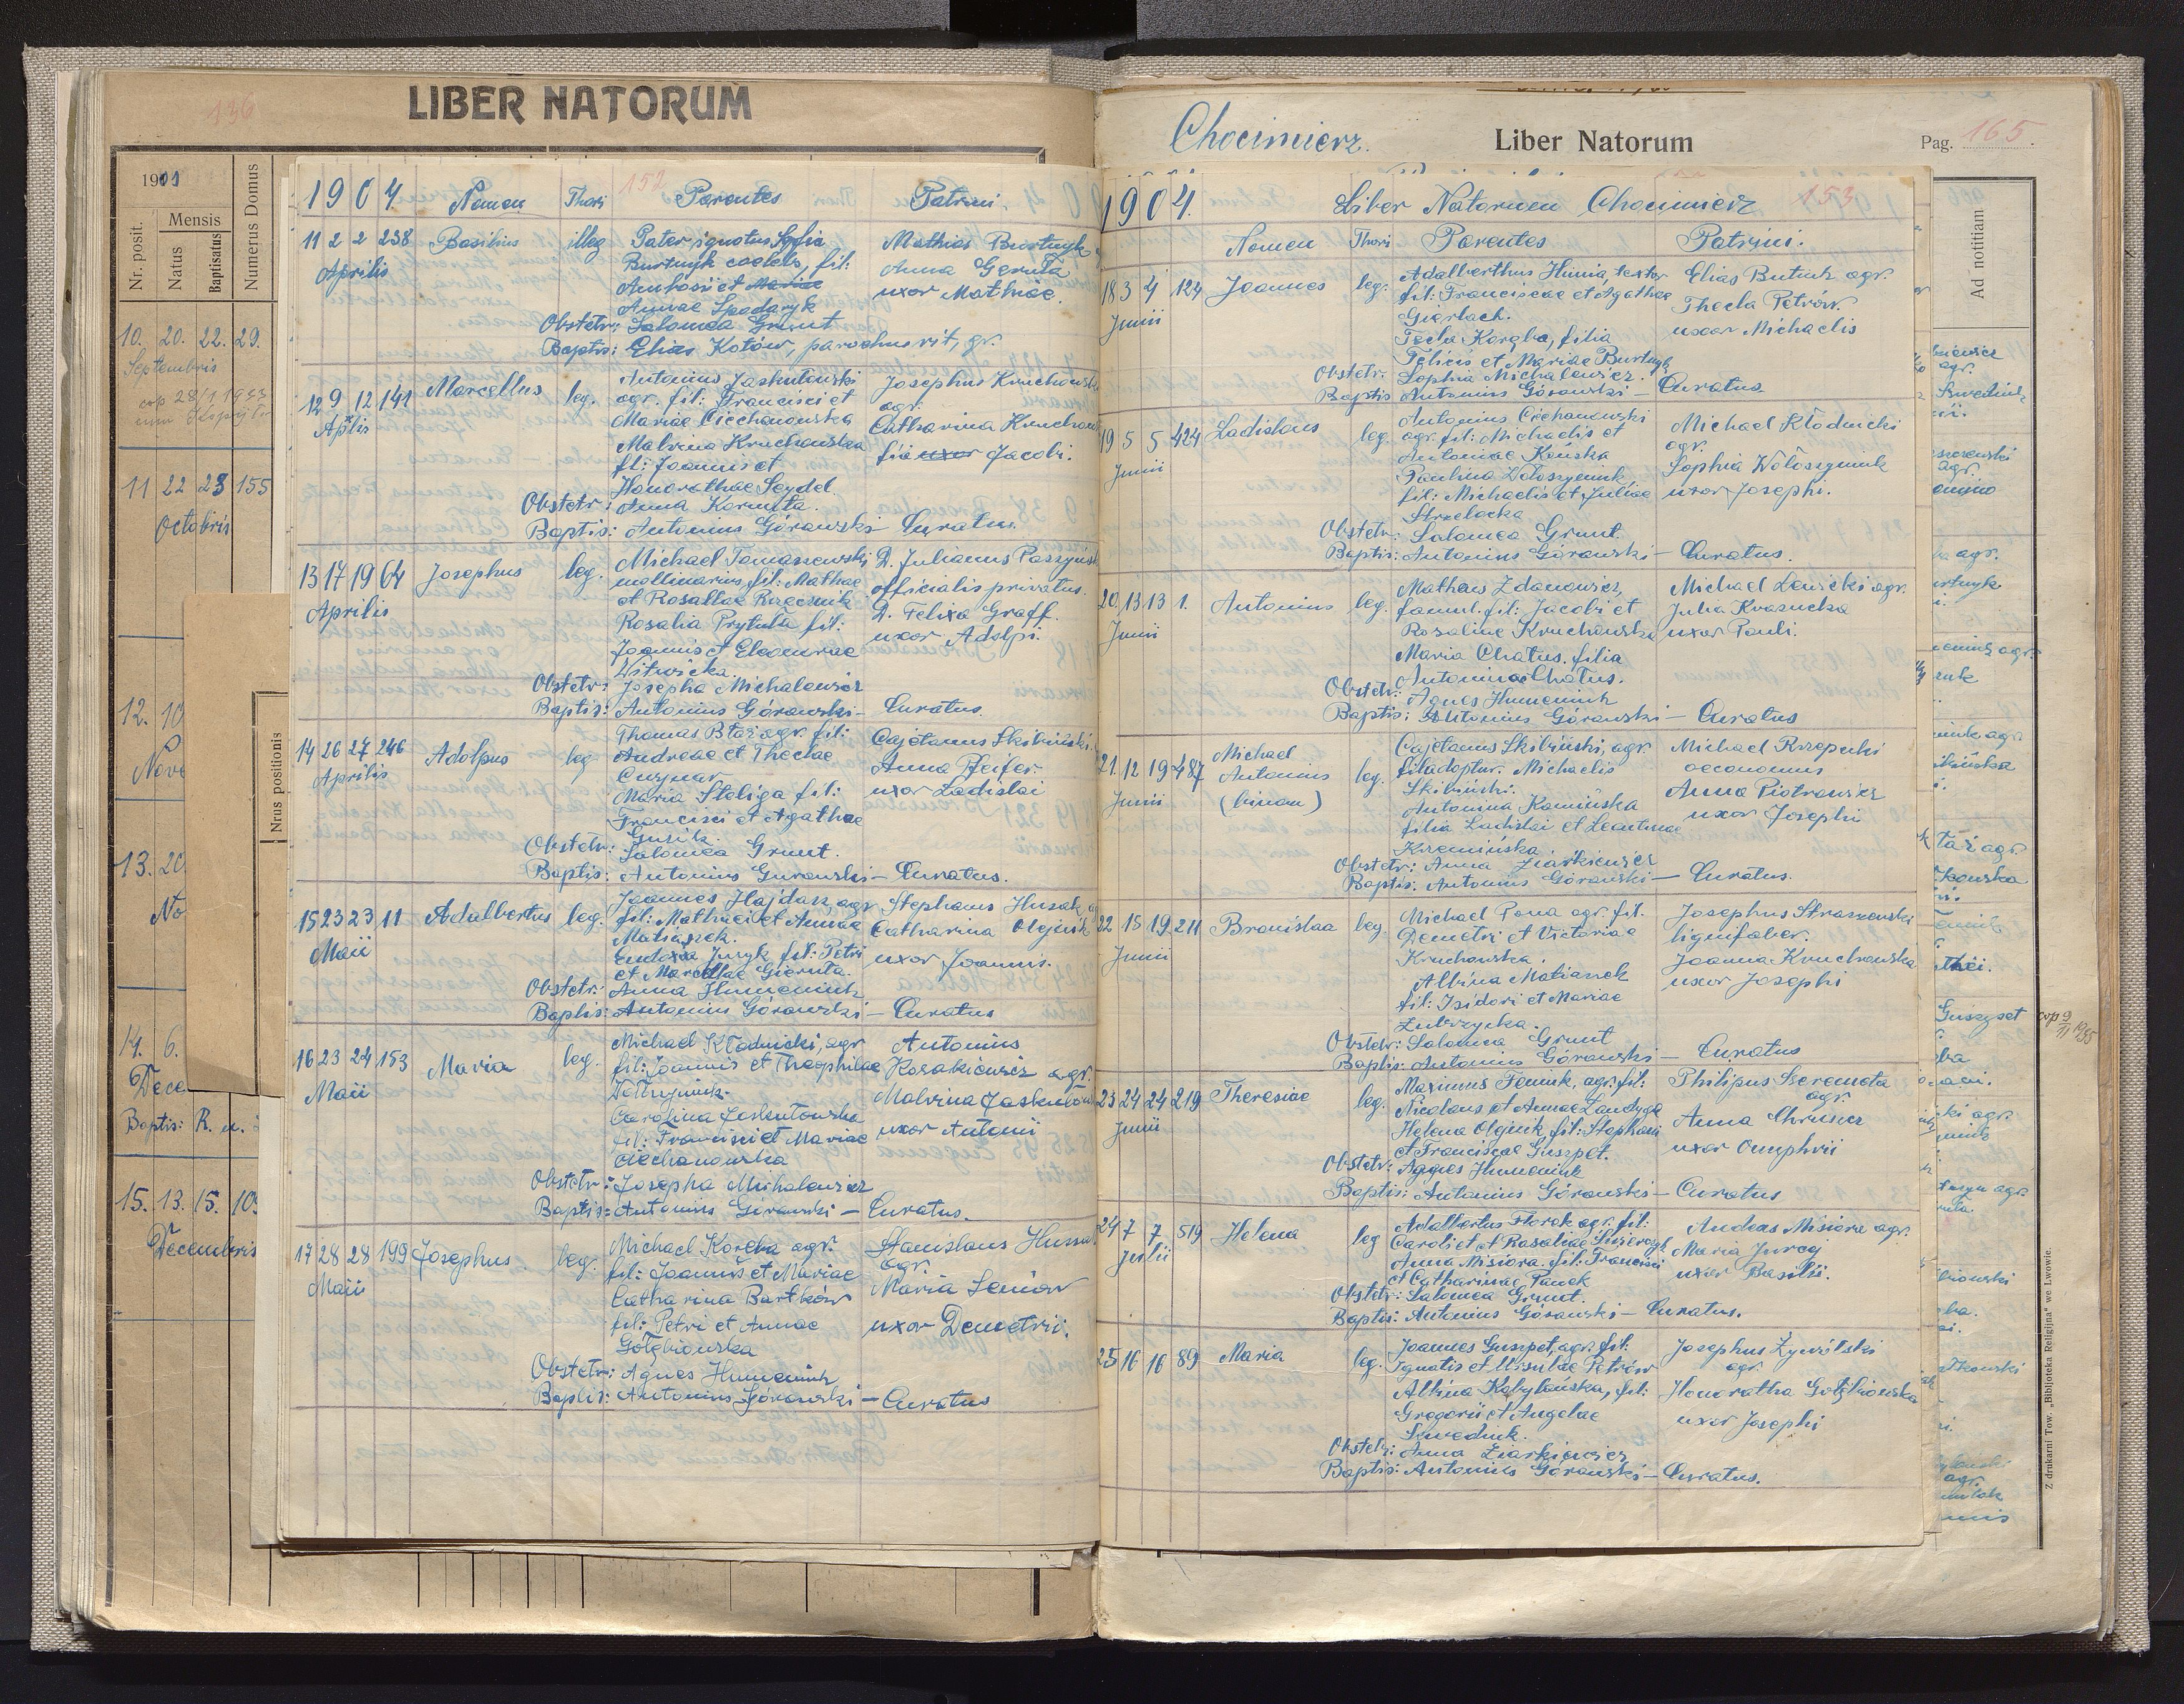 136
LIBER NATORUM
1901
Nr. posit.
Mensis
Natus
Baptisatus
Numerus Domus
10. 20. 22. 29.
Septembris
cop 28/1 1933
cum
11 22 23 155
Octobris
12. 10
Nove
13. 20
No
14. 6.
Dece
Baptis: R. u.
15. 13. 15. 10
Decembris
Nrus positionis
1904 Nomen Thori 152 Parentes Patrini
11 2 2 238 Basilius illeg Pater ignotus Sofia Mathias Burtnyk
Aprilis Burtnyk coelebs, fil: Anna Geruta
Ambosii et Mariae uxor Mathiae.
Annae Spodaryk
Obstetr: Salomea Grunt
Baptis: Elias Kotów, parochus rit, gr.
12 9 12 141 Marcellus leg. Antonius Jaskulowski Josephus Kruchowski
Aplis agr. fil: Francisci et agr.
Mariae Ciechanowska Catharina Kruchow
Malvina Kruchowska fia uxor Jacobi.
fil: Joannis et
Honorathae Seydel.
Obstetr: Anna Kormita.
Baptis: Antonius Górawski – Curatus.
13 17 19 64 Josephus leg. Michael Tomaszewski D. Julianus Paszyński
Aprilis mollinarius, fil: Mathae officialis privatus.
et Rosaliae Rzecznik D. Felixa Graff.
Rosalia Prytuła fil: uxor Adolpi.
Joannis et Eleonorae
Witwicka.
Obstetr: Josepha Michalewicz
Baptis: Antonius Górawski – Curatus.
14 26 27 246 Adolpus leg Thomas Ptaź agr. fil: Cajetanus Skibiński
Aprilis Andreae et Theclae Anna Pfeifer.
uxor Ladislai
Maria Stoliga fil:
Francisci et Agathae
Gusik.
Obstetr: Salomea Grunt.
Baptis: Antonius Gurawski – Curatus.
15 23 23 11 Adalbertus leg. Joannes Hajdasz, agr Stephanus Husak
Maii fil: Mathaei et Annae Catharina Olejnik
Matiaszek. uxor Joannis.
Eudoxia Juzyk fil: Petri
et Marcellae Gieruta.
Obstetr: Anna Humeniuk
Baptis: Antonius Górawski – Curatus
16 23 24 153 Maria leg. Michael Kłodnicki, agr Antonius
Maii fil: Joannis et Theophilae Kosakiewicz agr.
Wołoszyniuk. Malvina Jaskulow
Carolina Jaskulowska uxor Antoni
fil: Francisci et Mariae
Ciechanowska
Obstetr: Josepha Michalewicz
Baptis: Antonius Górawski – Curatus.
17 28 28 199 Josephus leg. Michael Koreba agr. Stanislaus Hussa
Maii fil: Joannis et Mariae agr.
Catharina Bartków Maria Seniow
fil: Petri et Annae uxor Demetrii.
Gołębiowska
Obstetr: Agnes Humeniuk
Baptis: Antonius Górawski – Curatus
Chocimierz.
Liber Natorum
Pag. 165.
Ad notitiam
1904. Liber Natorum Chocimierz 153
Nomen Thori Parentes Patrini.
18 3 4 124 Joannes leg: Adalberthus Humia, textor Elias Butuk agr.
Junii fil: Franciscae et Agathae Thecla Petrów
Gierlach. uxor Michaelis
Tecla Koreba, filia
Felicis et Mariae Burtnyk
Obstetr: Sophia Michalewicz.
Baptis Antonius Górawski – Curatus
19 5 5 424 Ladislaus leg. Antonius Ciechanowski Michael Kłodnicki
Junii agr. fil: Michaelis et agr.
Antoniae Kańska Sophia Wołoszyniuk
Paulina Wołoszyniuk, uxor Josephi.
fil: Michaelis et Juliae
Strzelecka
Obstetr: Salomea Grunt.
Baptis: Antonius Górawski – Curatus.
20. 13 13 1. Antonius leg. Matheus Zdanowicz, Michael Lewicki agr.
Junii famul. fil: Jacobi et Julia Krasucka
Rosaliae Kruchowska uxor Pauli.
Maria Chatus. filia
Antoninae Chatus.
Obstetr: Agnes Humeniuk
Baptis: Antonius Górawski – Curatus
21. 12 19 487 Michael Antonius (binom) leg. Cajetanus Skibiński, agr. Michael Rzepecki
Junii fil adoptur. Michaelis oeconomus
Skibiński. Anna Piotrowicz
Antonina Kamińska uxor Josephi
filia Ladislai et Leontinae
Krzemińska
Obstetr: Anna Ziarkiewicz
Baptis: Antonius Górawski – Curatus.
22 15 19 211 Bronislaa leg. Michael Pona agr. fil. Josephus Straszewski
Junii Demetri et Victoriae lignifaber.
Kruchowska. Joanna Kruchowska
Albina Matiaszek uxor Josephi
fil: Isidori et Mariae
Zubrzycka.
Obstetr: Salomea Grunt
Baptis: Antonius Górawski – Curatus
23 24 24 219 Theresiae leg. Maximus Feniuk, agr. fil: Philipus Seremeta
Junii Nicolaus et Annae Landyga agr.
Helena Olejnik, fil: Stephani Anna Chrusez
et Franciscae Guszpet. uxor Onuphrii
Obstetr: Agnes Humeniuk
Baptis: Antonius Górawski – Curatus
24 7 7 519 Helena leg Adalbertus Florek agr. fil: Andreas Misiora agr.
Julii Caroli et et Rosaliae Swierczyk Maria Jurcaj
Anna Misiora. fil: Francisci uxor Basilii.
et Catharinae Panek
Obstetr: Salomea Grunt.
Baptis: Antonius Górawski – Curatus.
25 16 16 89 Maria leg. Joannes Guszpet, agr. fil: Josephus Żywólski
Ignatis et Ursulae Petrów agr.
Albina Kobylańska, fil: Honoratha Gołębiowska
Gregorii et Angelae uxor Josephi
Szweduk.
Obstetr: Anna Ziarkiewicz
Baptis: Antonius Górawski – Curatus.
cop 9/VI 1935
Z drukarni Tow. „Bibljoteka Religijna" we Lwowie.